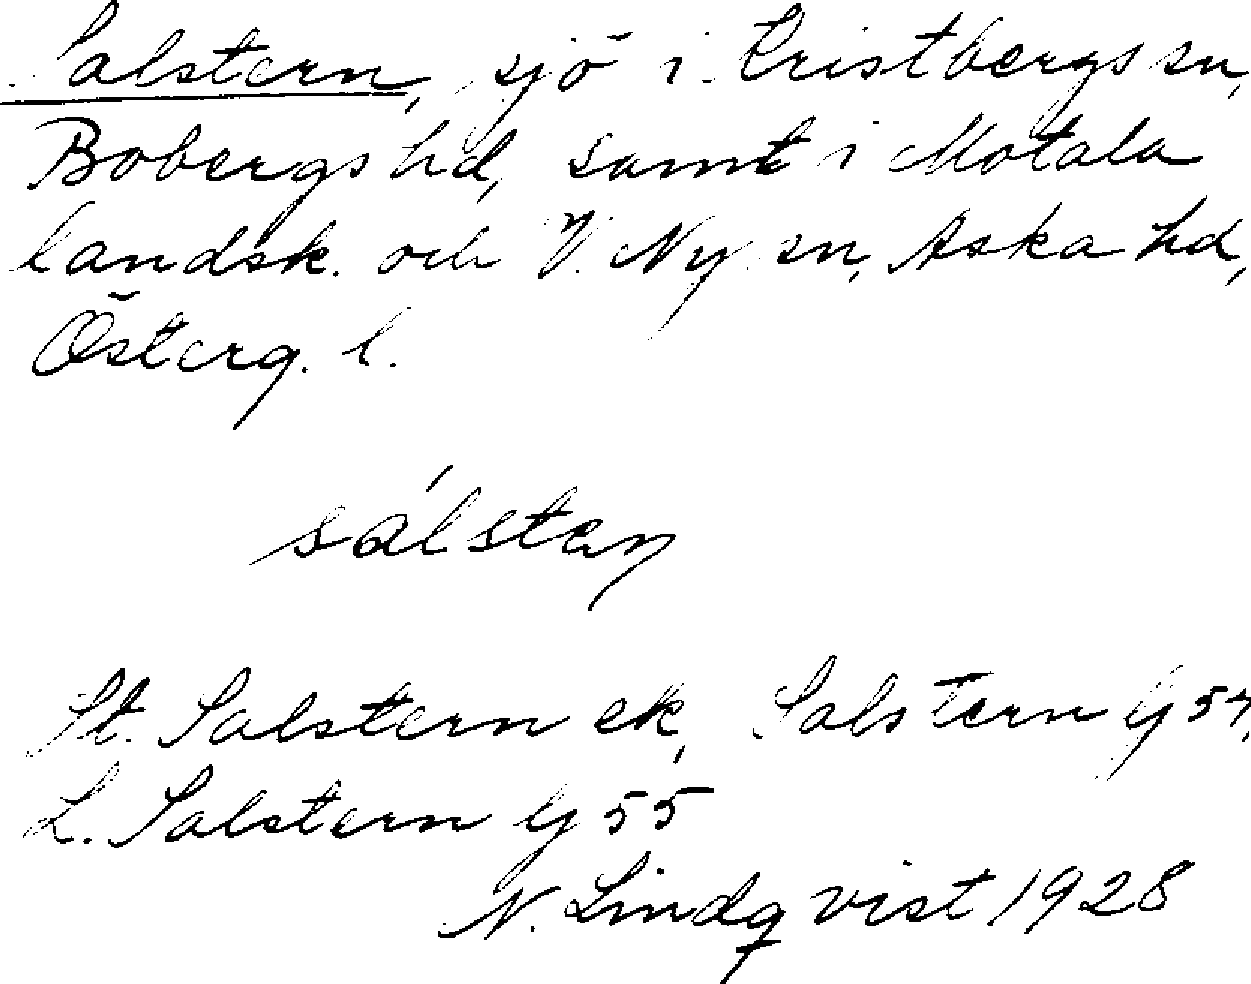 Salstern, sjö i Kristbergs sn,
Bobergs hd, samt i Motala
landsk. och V. Ny sn, Aska hd,
Österg. l.
sálstaṇ
St. Salstern ek, Salstern Gj 54,
L. Salstern Gj 55
N. Lindqvist 1928